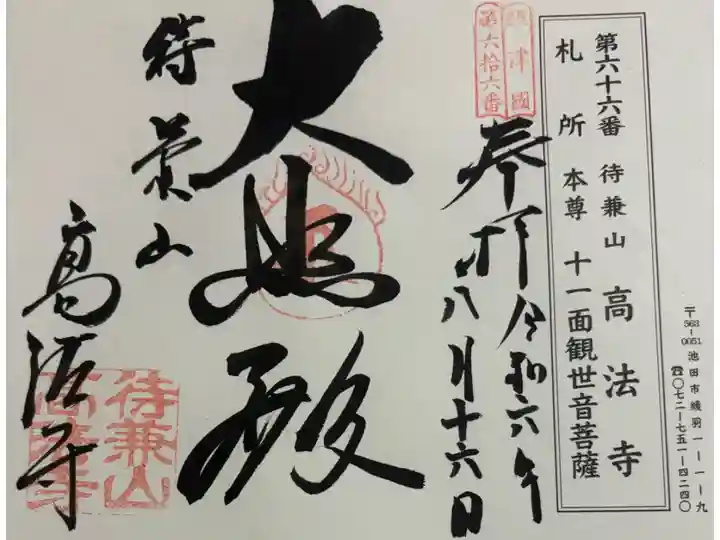 第六十六番 待兼山 高法寺
札所本尊 十一面観世音菩薩
〒563-0051 池田市綾羽一-一-九
☎〇七二-七五一-四二四〇
摂津國
第六拾六番
奉拝 令和六年
八月十六日
大悲殿
待兼山
高法寺
待兼山
高法寺